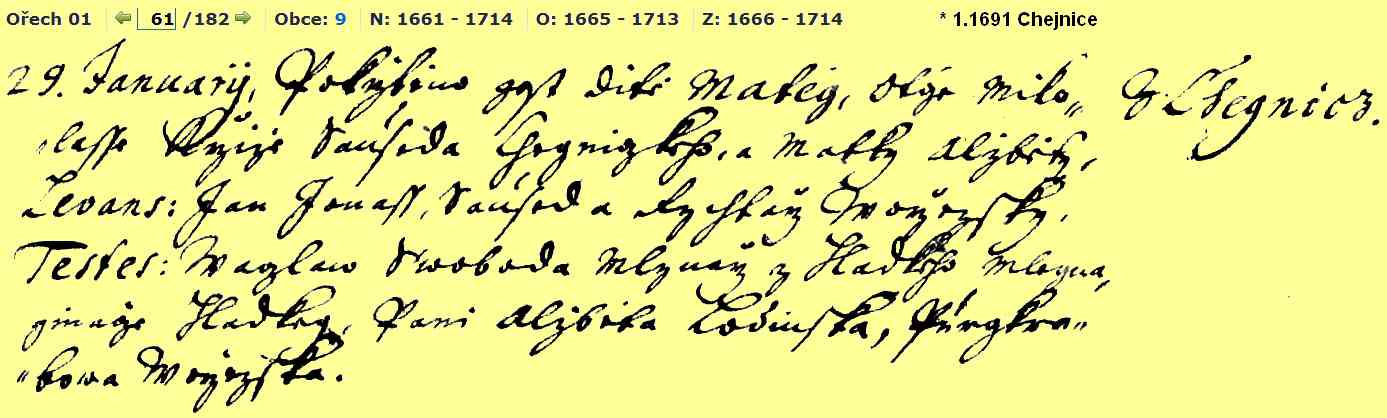 Ořech 01 61 /182 Obce: 9 N: 1661 - 1714 O: 1665 - 1713 Z: 1666 - 1714 * 1.1691 Chejnice
29. Januarij, Pokrztieno gest ditie Matieg, otcze Miko„
Z Chegnicz.
lasse Saúseda Chegnizkeho, a Matky Alzbiety,
Levans: Jan Jonass, Saused a Rychtarz Worzezsky,
Testes: Waczlaw Swoboda Mlynarz z Hladkeho Mlegna,
ginacze Hladkeg, Pani Alzbieta Loćinska, Púrgkra„
„bowa Worzezska.